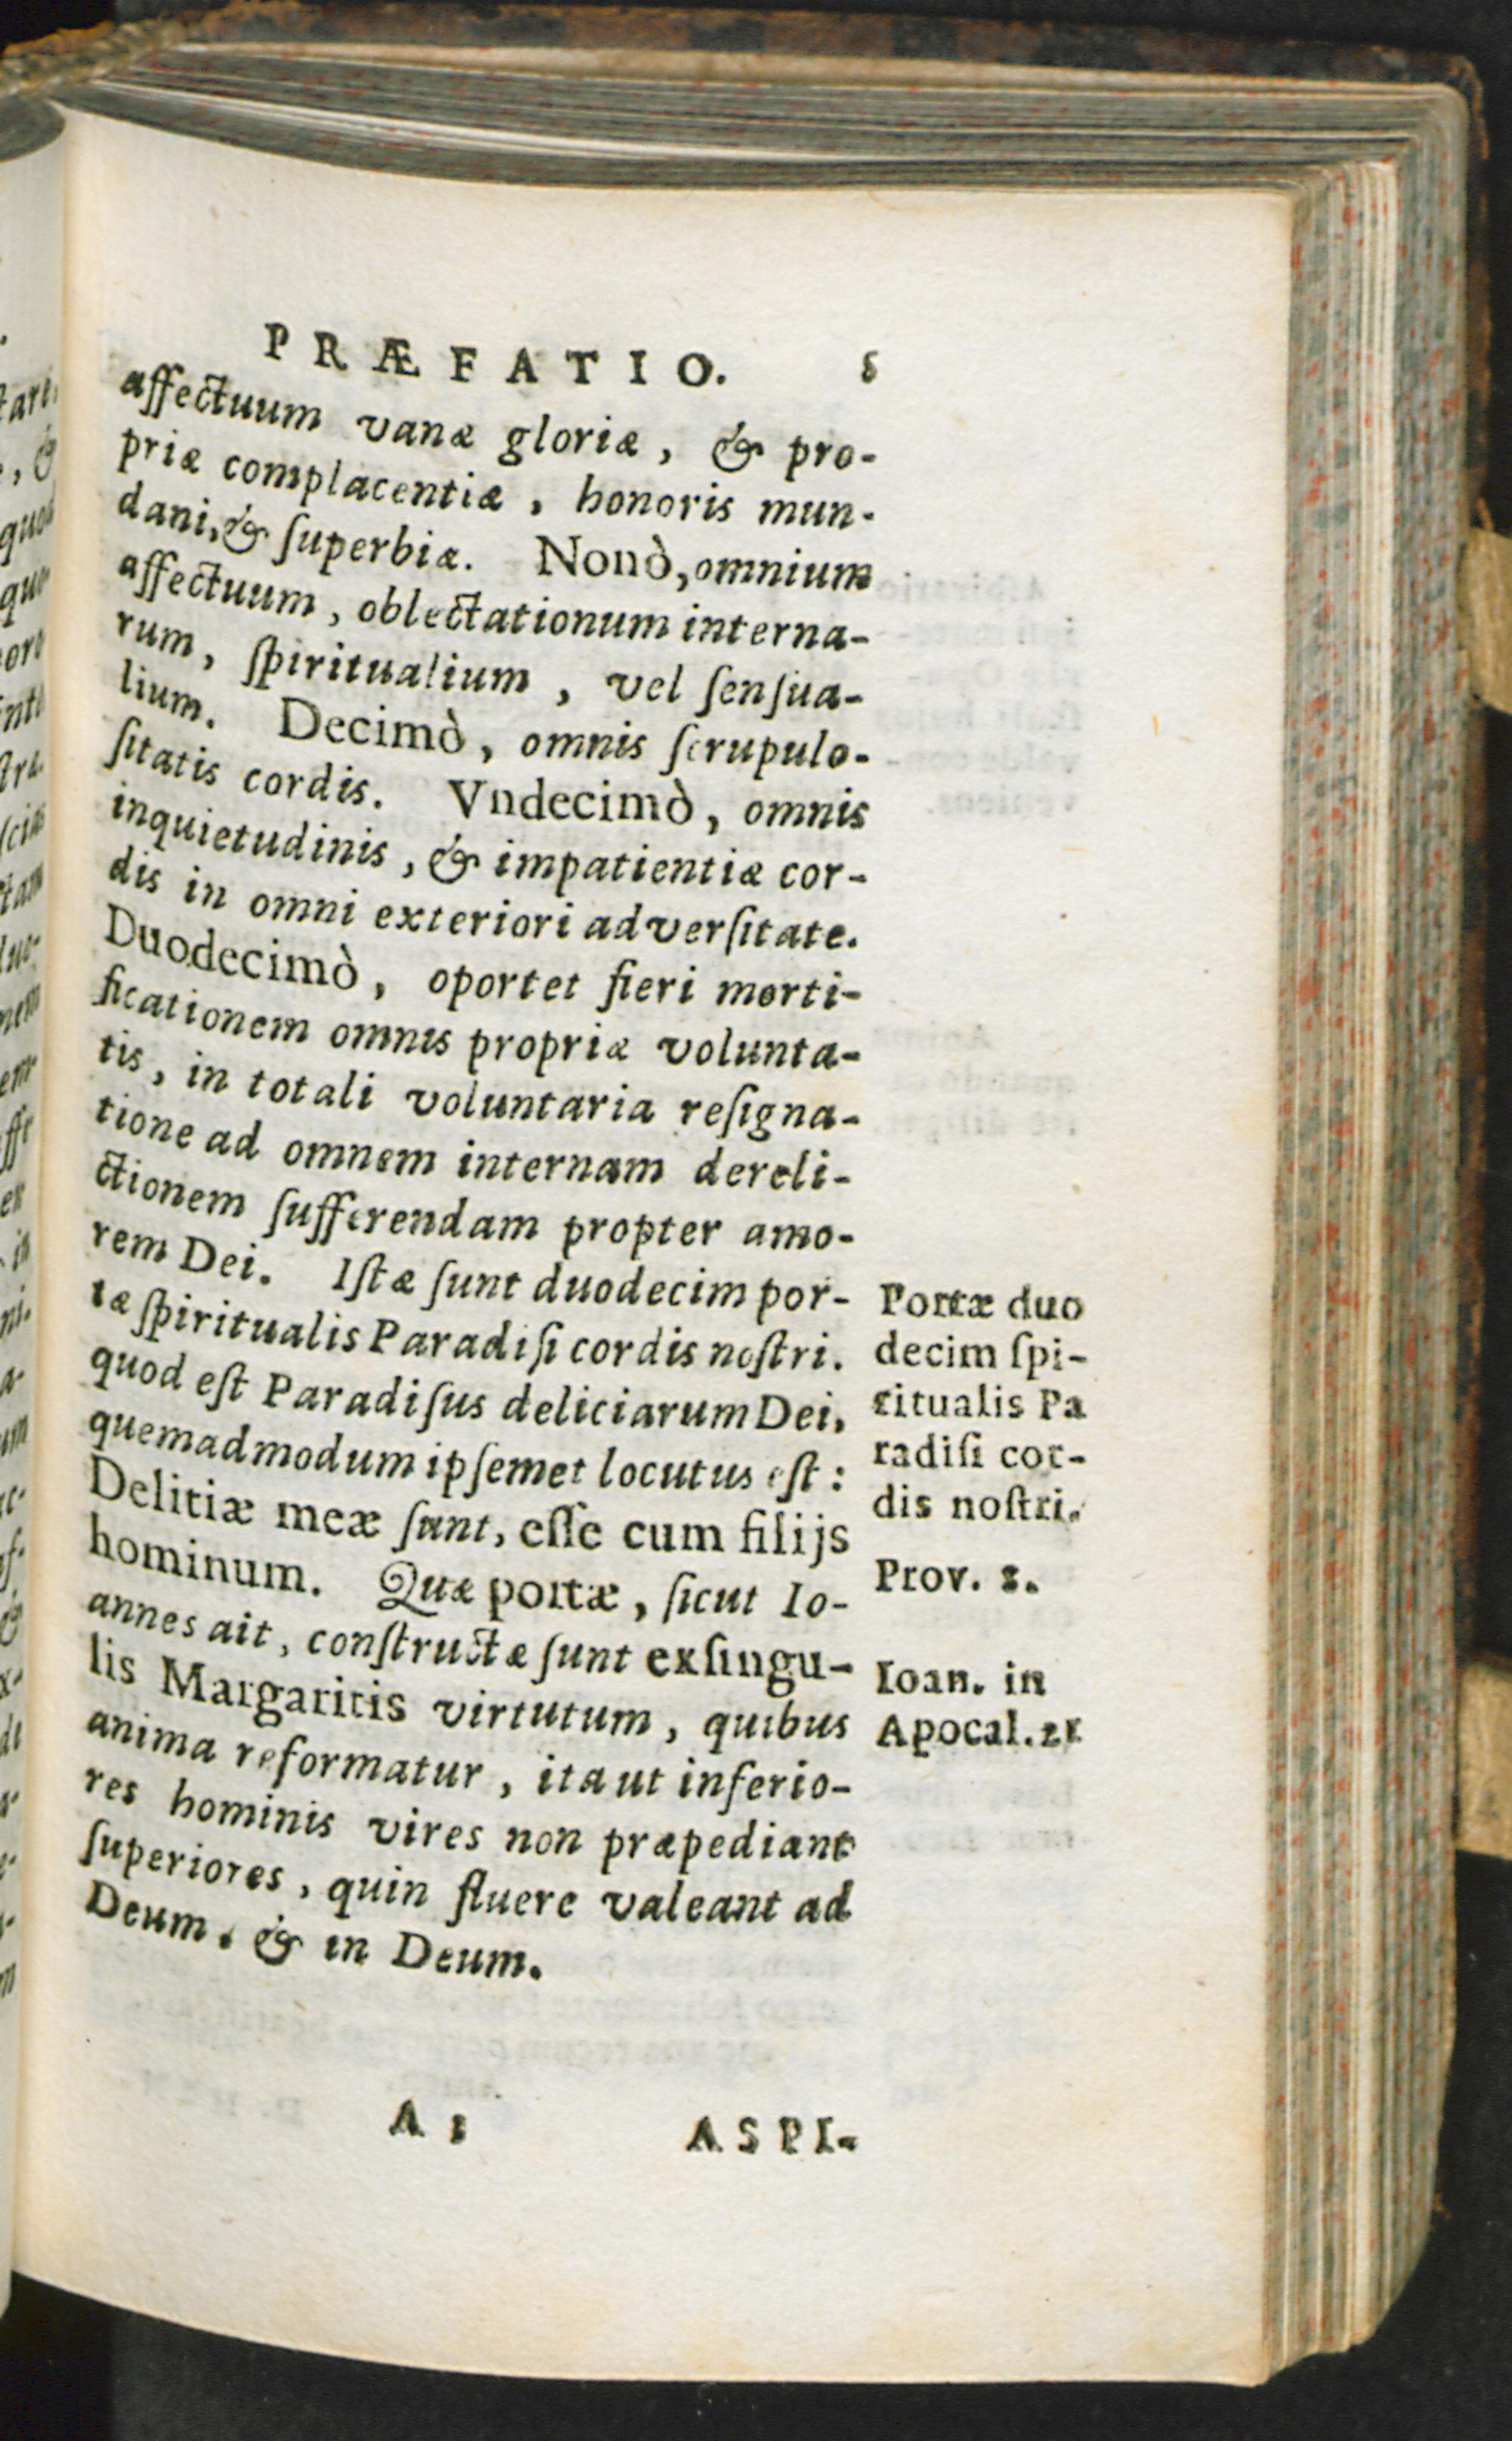 PRÆFATIO. 5
affectuum vanæ gloriæ, & pro-
priæ complacentiæ, honoris mun-
dani, & ſuperbiæ. Nonò, omnium
affectuum, oblectationum interna-
rum, ſpiritualium, vel ſenſua-
lium. Decimò, omnis ſcrupulo-
ſitatis cordis. Vndecimò, omnis
inquietudinis, & impatientiæ cor-
dis in omni exteriori adverſitate.
Duodecimò, oportet fieri morti-
ficationem omnis propriæ volunta-
tis, in totali voluntaria reſigna-
tione ad omnem internam dereli-
ctionem ſufferendam propter amo-
rem Dei. Iſtæ ſunt duodecim por-
tæ ſpiritualis Paradiſi cordis noſtri.
quod eſt Paradiſus deliciarum Dei,
quemadmodum ipſemet locutus eſt:
Delitiæ meæ ſunt, eſſe cum filijs
hominum. Quæ portæ, ſicut Io-
annes ait, conſtructæ ſunt ex ſingu-
lis Margaritis virtutum, quibus
anima reformatur, ita ut inferio-
res hominis vires non præpediant
ſuperiores, quin fluere valeant ad
Deum, & in Deum.
Portæ duo
decim ſpi-
ritualis Pa
radiſi cor-
dis noſtri.
Prov. 8.
Ioan. in
Apocal. 21
A 5 ASPI-